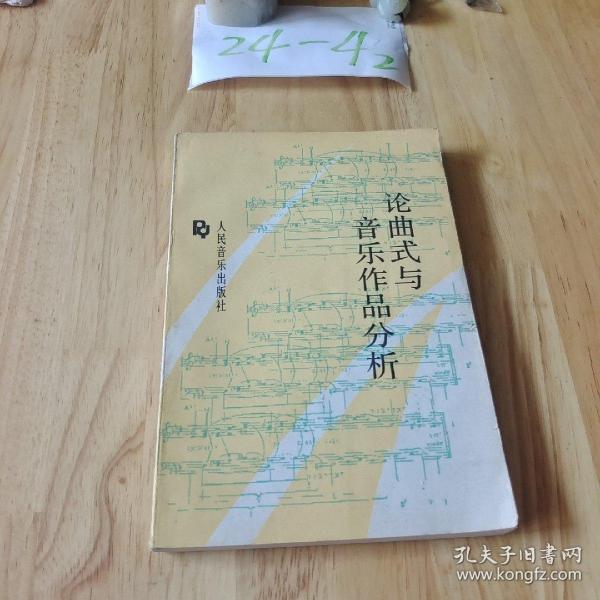 24-42
论曲式与
音乐作品分析
人民音乐出版社
孔夫子旧書网
www.kongfz.com